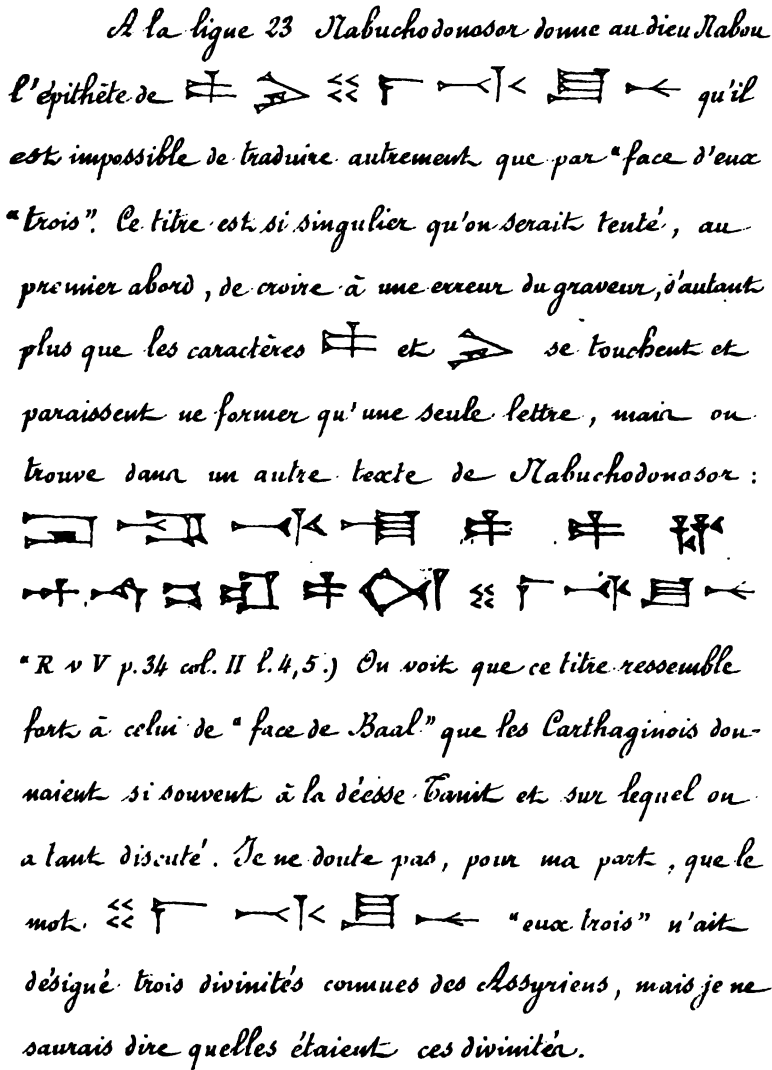 A la ligne 23 Nabuchodonosor donne au dieu Nabou
l'épithète de qu'il
est impossible de traduire autrement que par "face d'eux
"trois". Ce titre est si singulier qu'on serait tenté, au
premier abord, de croire à une erreur du graveur, d'autant
plus que les caractères et se touchent et
paraissent ne former qu'une seule lettre, mais on
trouve dans un autre texte de Nabuchodonosor :
"R v V p. 34 col. II l. 4, 5.) On voit que ce titre ressemble
fort à celui de "face de Baal" que les Carthaginois don-
naient si souvent à la déesse Tanit et sur lequel on
a tant discuté. Je ne doute pas, pour ma part, que le
mot "eux trois" n'ait
désigné trois divinités connues des Assyriens, mais je ne
saurais dire quelles étaient ces divinités.